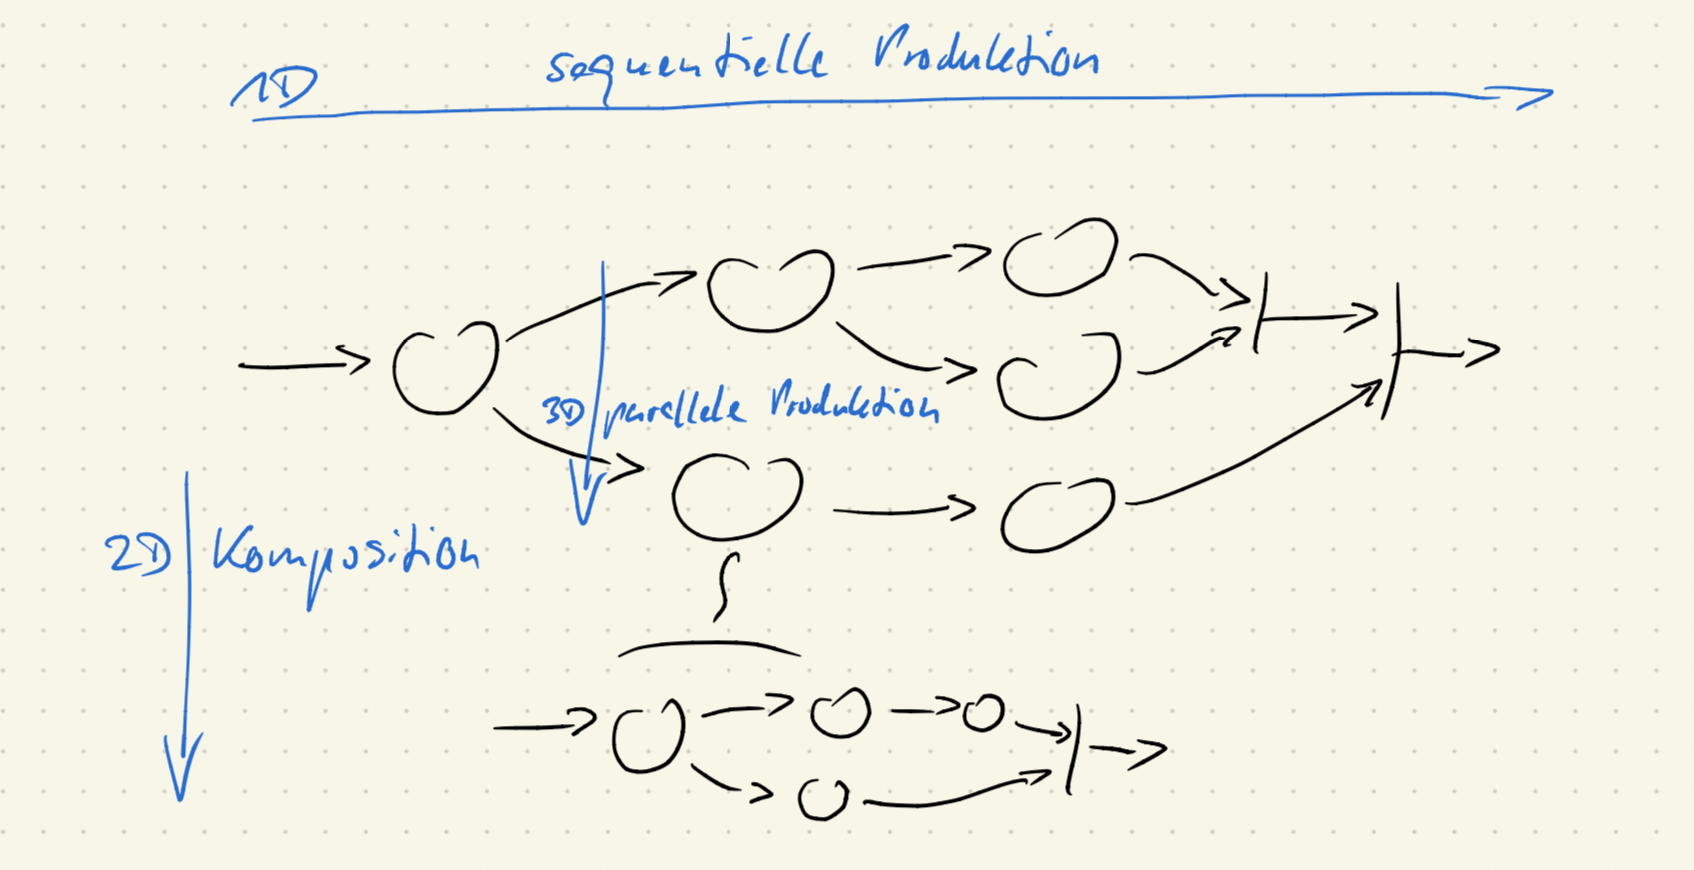 1D sequentielle Produktion
3D parallele Produktion
2D Komposition